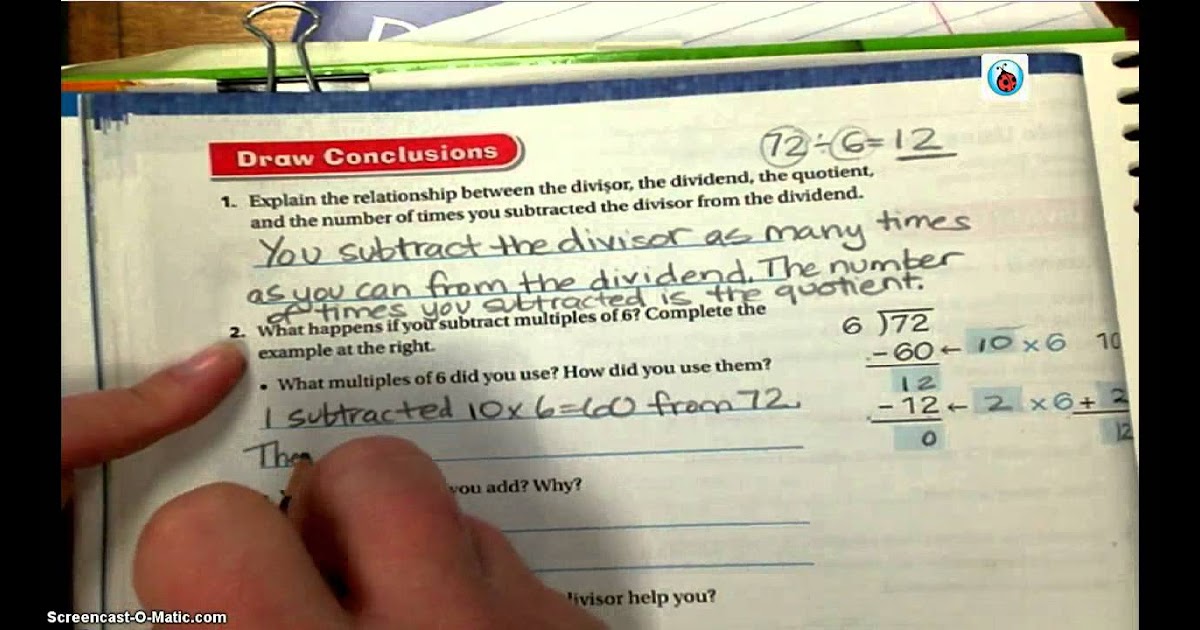 72÷6=12
Draw Conclusions
1. Explain the relationship between the divisor, the dividend, the quotient,
and the number of times you subtracted the divisor from the dividend.
You subtract the divisor as many times
as you can from the dividend. The number
of times you subtracted is the quotient.
2. What happens if you subtract multiples of 6? Complete the
example at the right.
• What multiples of 6 did you use? How did you use them?
I subtracted 10x6=60 from 72.
The
you add? Why?
divisor help you?
6 )72
-60 ← 10 x 6 10
12
-12 ← 2 x 6 + 2
0 12
Screencast-O-Matic.com